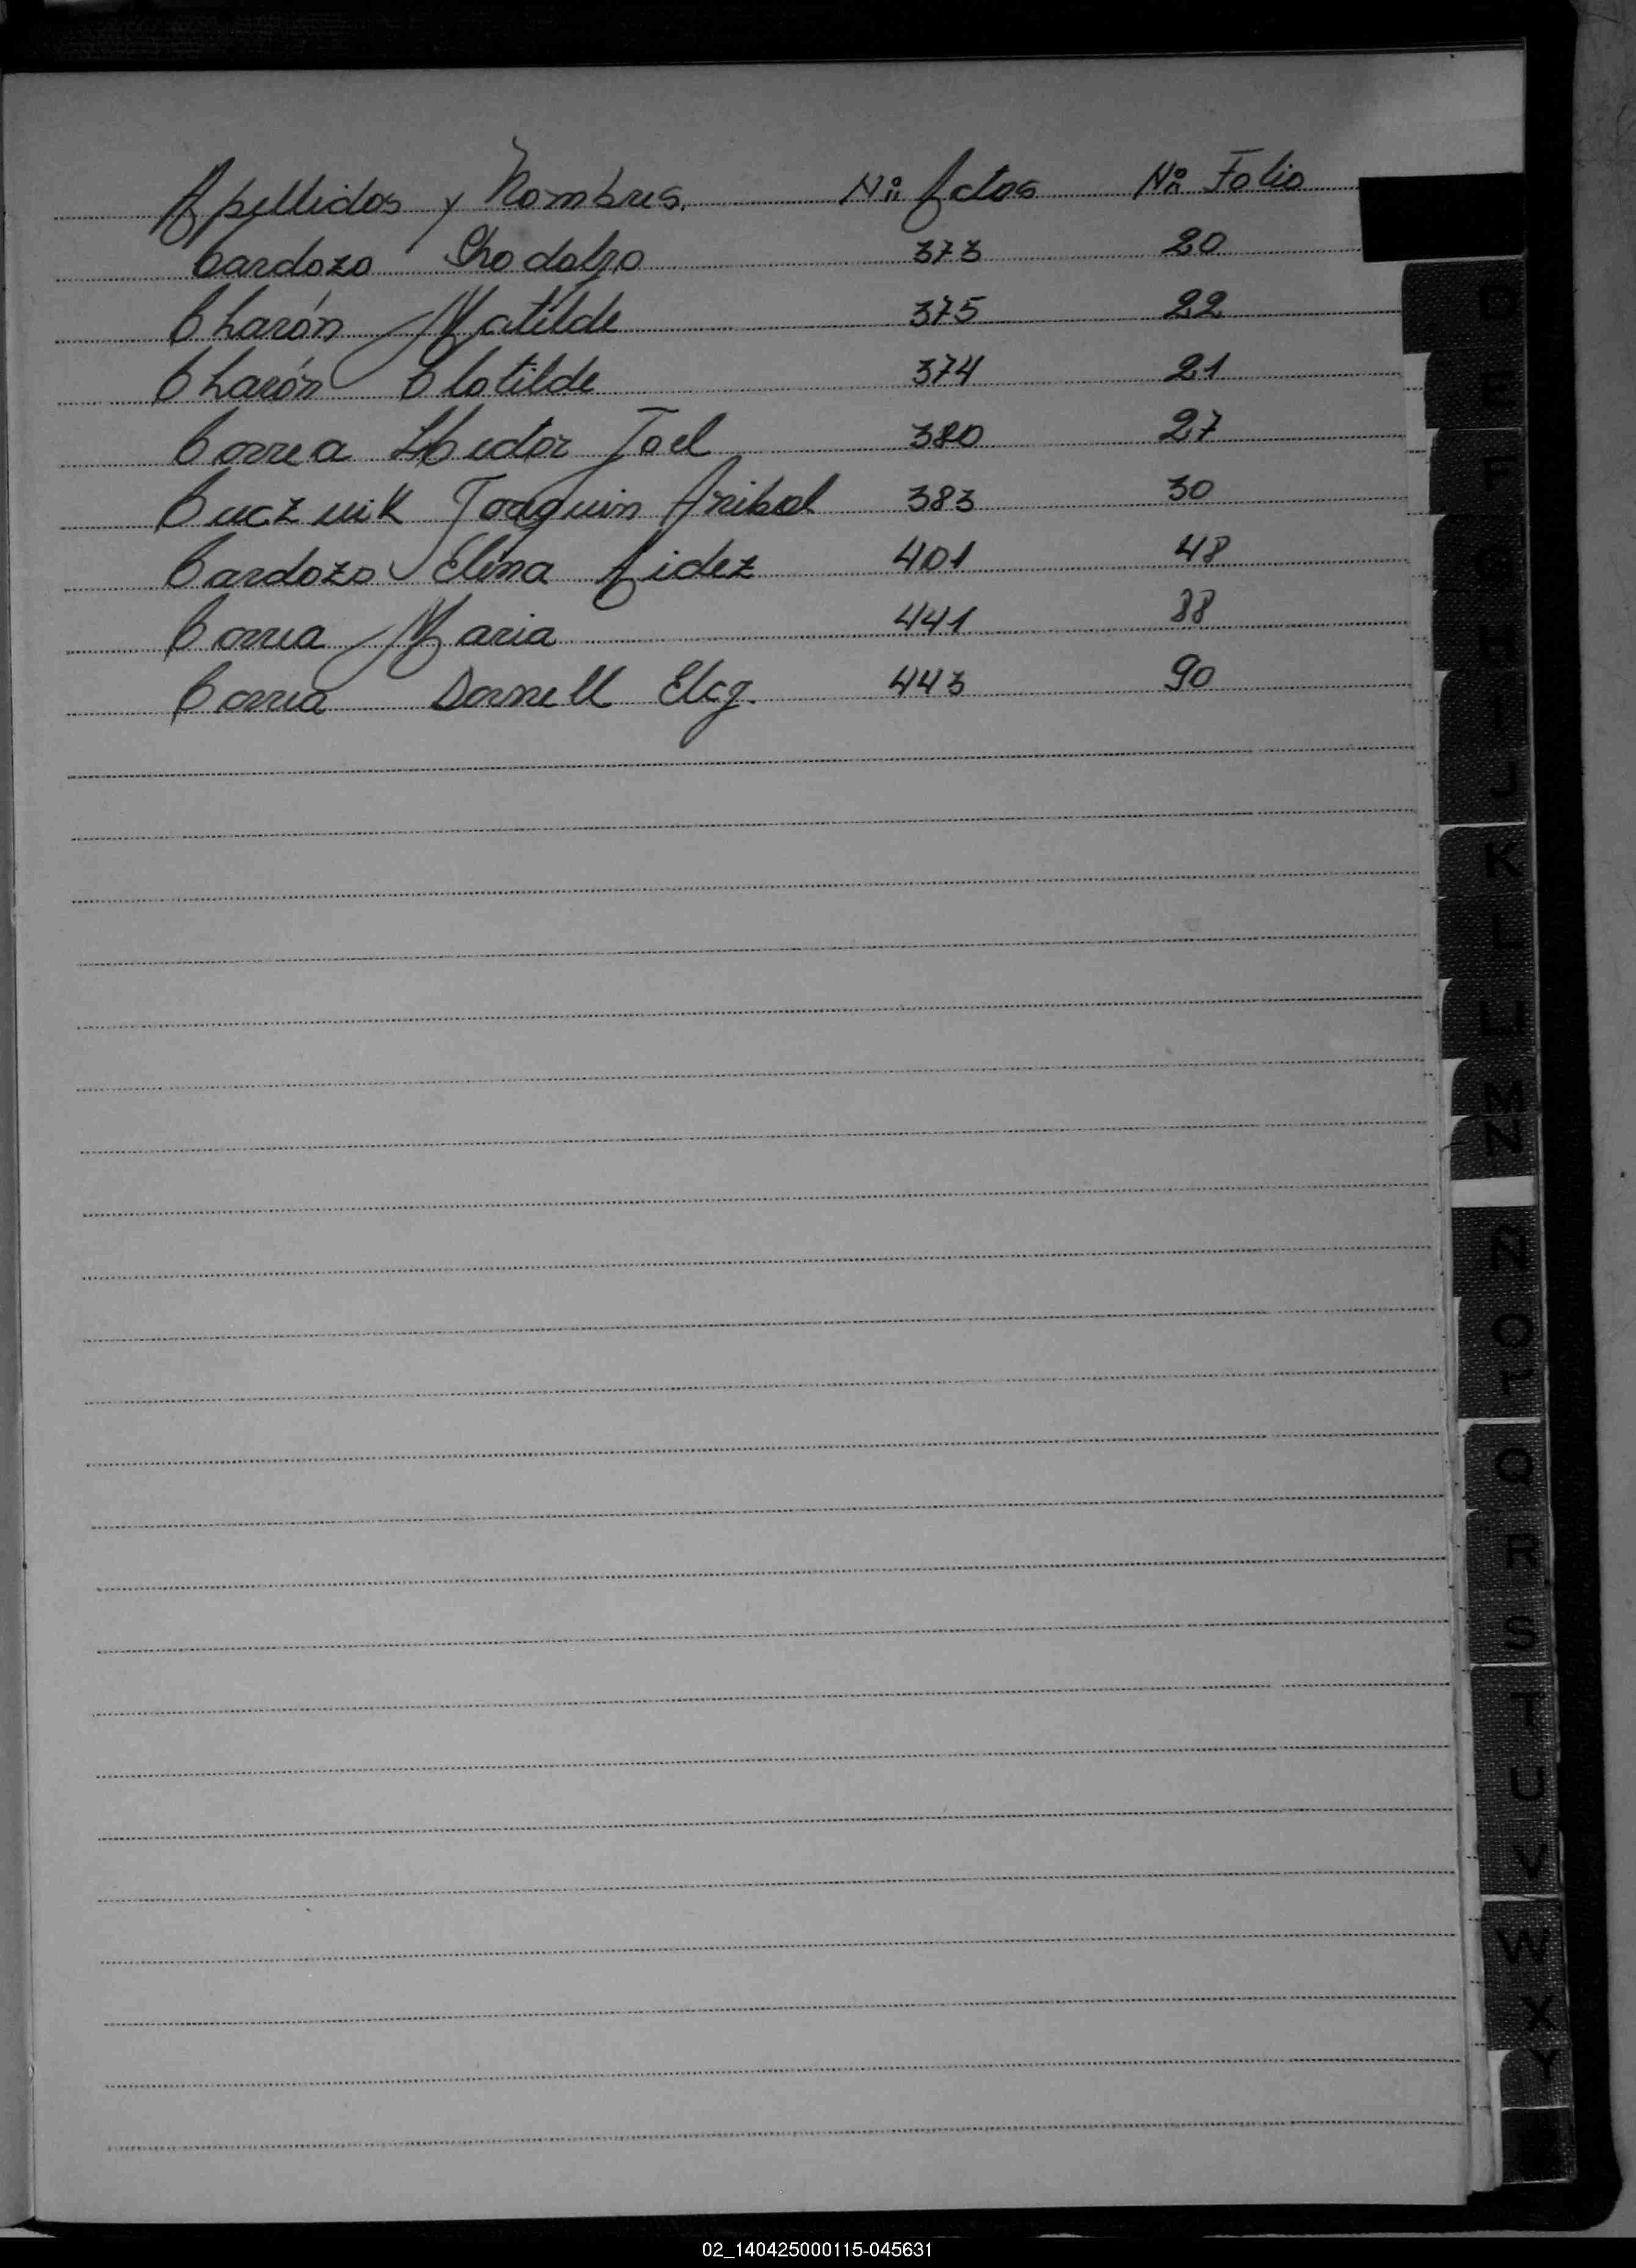 Apellidos y Nombres. Nº Actas Nº Folio
Cardozo Rodolfo 373 20
Charón Matilde 375 22
Charón Clotilde 374 21
Correa Hector Joel 380 27
Joaquin Anibal 383 30
Cardozo Elina Aidez 401 48
Correa Maria 441 88
Correa Dornell 443 90
D
E
F
G
H
I
J
K
L
LL
M
N
Ñ
O
P
Q
R
S
T
U
V
W
X
Y
02_140425000115-045631